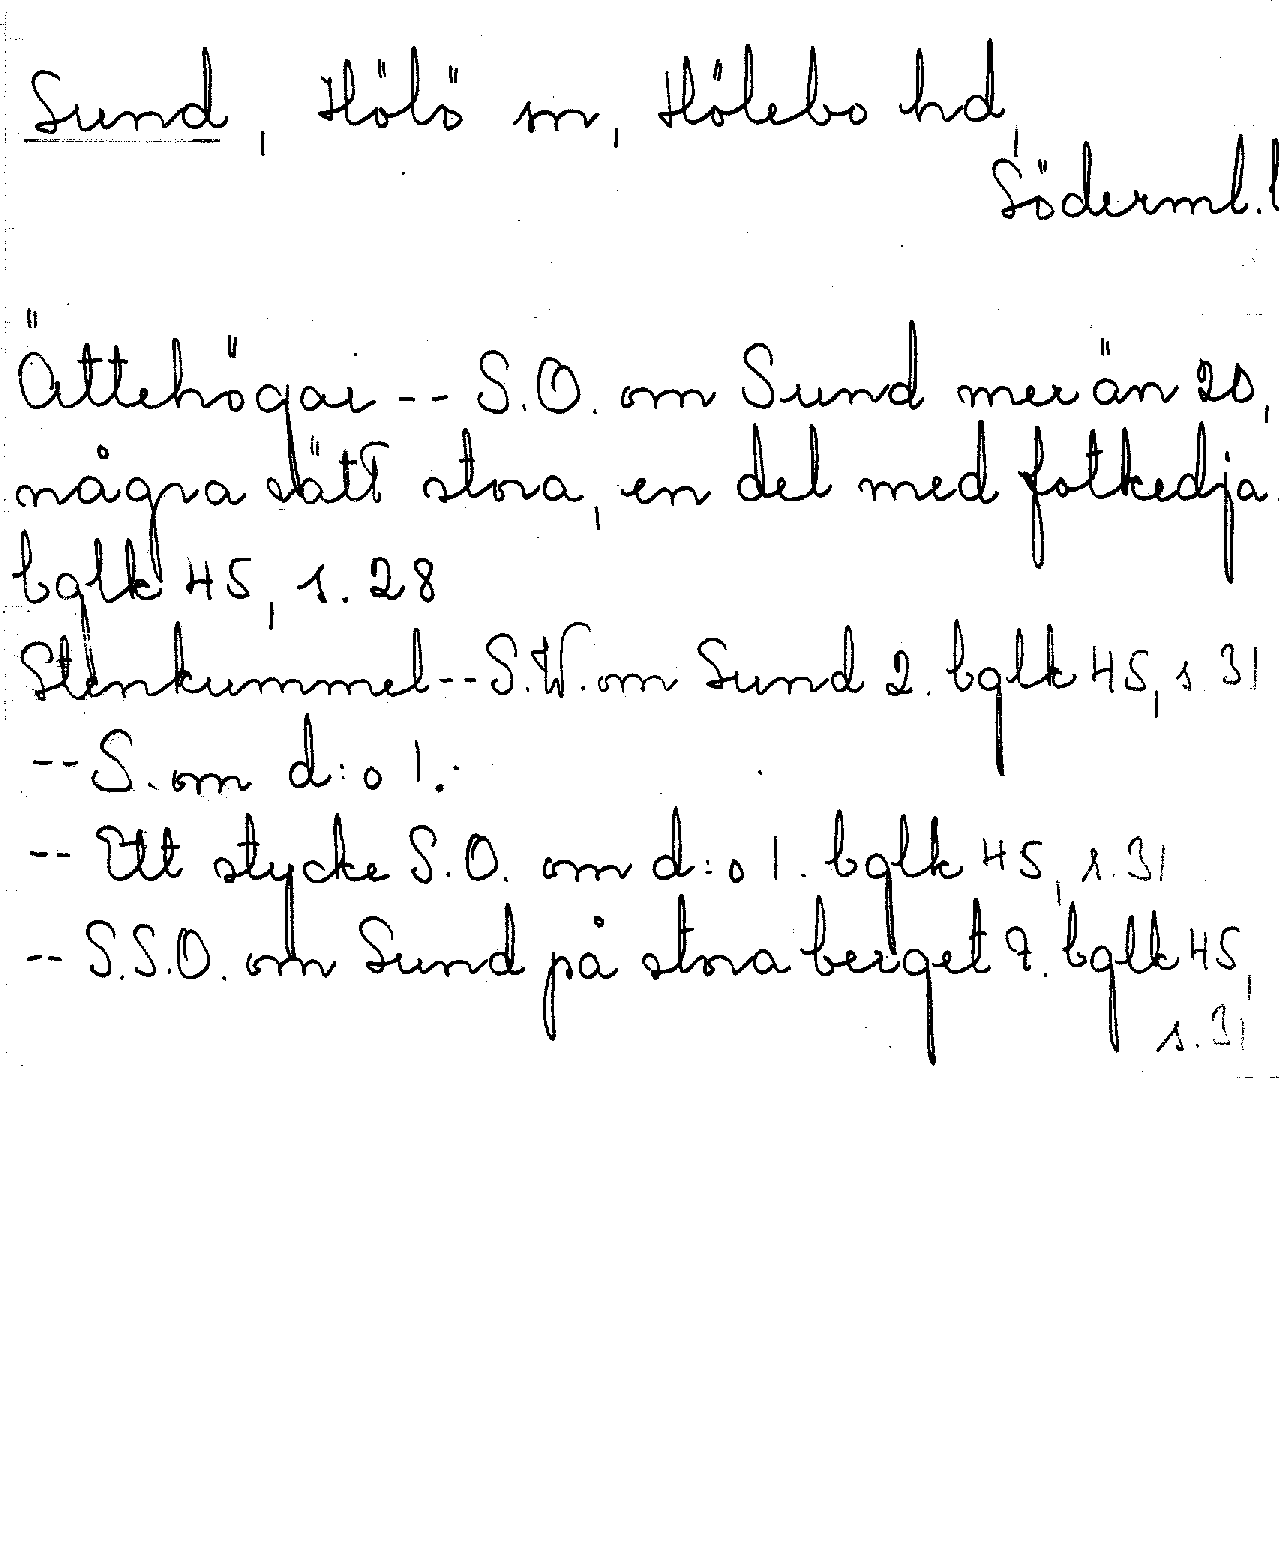 Sund, Hölö sn, Hölebo hd,
Söderml. l
Ättehögar -- S.O. om Sund mer än 20,
några rätt stora, en del med fotkedja.
bglk 45, s. 28
Stenkummel -- S.W. om Sund 2. bglk 45, s. 31
-- S. om d:o 1.
-- Ett stycke S.O. om d:o 1. bglk 45, s. 31
-- S.S.O. om Sund på stora berget 7. bglk 45,
s. 31